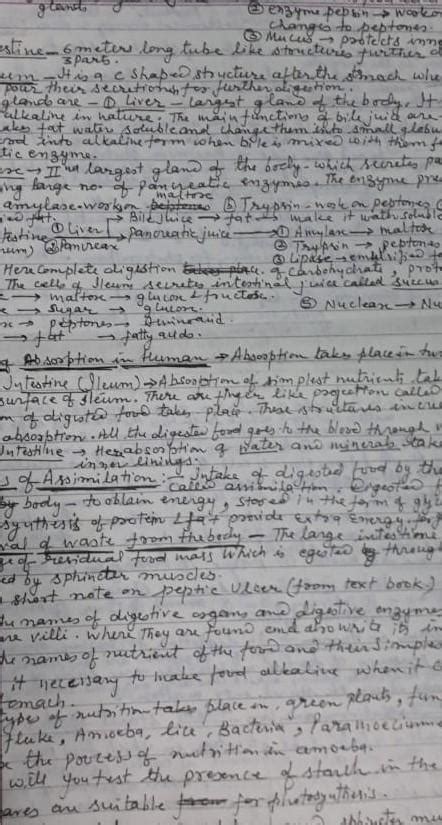 glands
② enzyme pepsin → work on
changes to peptones.
③ Mucus → protects inne
estine - 6 meters long tube like structures further d
3 parts.
eum - It is a c shaped structure after the stomach whe
pour their secretions for further digestion.
glands are - ① Liver - largest gland of the body. It
alkaline in nature. The main functions of bile juice are -
akes fat water soluble and change them into small globu
ood into alkaline form when bile is mixed with them f
tic enzyme.
eas → IInd largest gland of the body - which secretes pa
ing large no. of pancreatic enzymes. The enzyme pre
amylase - work on peptones maltose ⓑ Trypsin - work on peptones
ied fat.
testine ① Liver → Bile juice → fat → make it water soluble
num) ② Pancreas → pancreatic juice → ① Amylase → maltose
② Trypsin → peptones
③ Lipase → emulsified fa
Here complete digestion takes place of carbohydrate, prot
The cells of Ileum secretes intestinal juice called succus
→ maltose → glucose & fructose.
→ sugar → glucose. ⑤ Nuclease → Nu
→ peptones → Amino acid.
→ fat → fatty acids.
of Absorption in Human → Absorption takes place in two
Intestine (Ileum) → Absorption of simplest nutrients tak
surface of Ileum. There are finger like projection called
n of digested food takes place. These structures incre
absorption. All the digested food goes to the blood through v
Intestine → Here absorption of water and minerals take
inner linings.
s of Assimilation: - intake of digested food by the
called assimilation. Digested f
by body - to obtain energy, stored in the form of gly
synthesis of protein & fat provide extra energy.
val of waste from the body - The large intestine
ge of residual food mass which is egested by through
ed by sphincter muscles.
short note on peptic Ulcer (from text book)
the names of digestive organs and digestive enzyme
are villi. where they are found and also write its im
the names of nutrient of the food and their simples
it necessary to make food alkaline when it c
tomach.
types of nutrition takes place in, green plants, fun
fluke, Amoeba, lice, Bacteria, Paramoecium
e the process of nutrition in amoeba.
will you test the presence of starch in the
aves are suitable for photosynthesis.
and sphincter mus